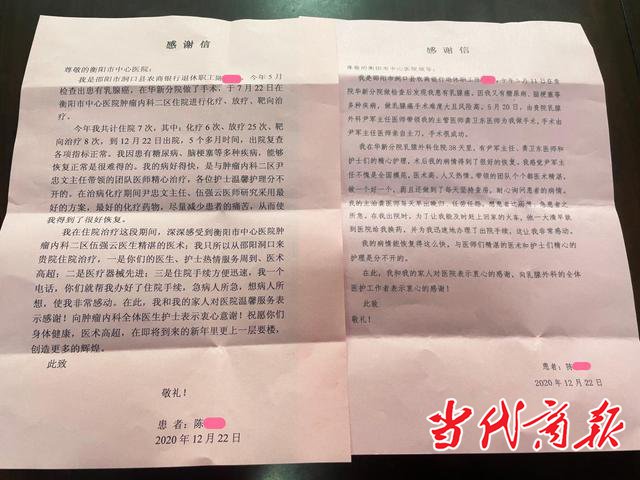 感 谢 信
尊敬的衡阳市中心医院：
我是邵阳市洞口县农商银行退休职工陈
，今年5月
检查出患有乳腺癌，在华新分院做了手术，于7月22日在
衡阳市中心医院肿瘤内科二区住院进行化疗、放疗、靶向
治疗。
今年我共计住院7次，其中：化疗6次、放疗25次、靶向
治疗8次，到12月22日出院，5个多月时间，出院复查
各项指标正常。我因患有糖尿病、脑梗塞等多种疾病，能够
恢复正常是很难得的。我的病好得快，是与肿瘤内科二区尹
忠文主任带领的团队医师精心治疗，各位护士温馨护理分不
开的。在治病化疗期间尹忠文主任、伍强云医师研究采用最
好的方案，最好的化疗药物，尽量减少患者的痛苦，从而使
我得到了很好恢复。
我在住院治疗这段期间，深深感受到衡阳市中心医院肿
瘤内科二区伍强云医生精湛的医术，我只所以从邵阳洞口来
贵院住院治疗，一是你们的医生、护士热情服务周到、医术
高超；二是医疗器械先进；三是住院手续方便迅速，我一个
电话，你们就帮我办好了住院手续，急病人所急，想病人所
想，使我非常感动。在此，我和我的家人对医院温馨服务表
示感谢！向肿瘤内科全体医生护士表示衷心感谢！祝愿你们
身体健康，医术高超，在即将到来的新年里更上一层要楼，
创造更多的辉煌。
此致
敬礼！
患 者：陈
2020 年 12 月 22 日
感 谢 信
尊敬的衡阳市中心医院领导：
我是邵阳市洞口县农商银行退休职工陈
，于5月11日在贵
院华新分院做检查后发现我患有乳腺癌，因我又有糖尿病、脑梗塞
等多种疾病，做乳腺癌手术难度大且风险高。5月20日，由贵院乳腺
外科尹军主任医师带领我的主管医师龚卫东医师为我做手术，手术由
尹军主任医师亲自主刀，手术很成功。
我在华新分院乳腺外科住院38天里，有尹军主任、龚卫东医师和
护士们的精心护理，术后我的病情得到了很好的恢复。我感觉尹军主
任不愧是全国模范，医术高，人又热情，带领的团队个个都医术精湛，
做一个好一个，而且还做到了每天坚持查房，耐心询问患者的病情。
我的主治龚医师每天早出晚归，任劳任怨，想患者之所想，急患者之
所急。在我出院时，为了让我能及时赶上回家的火车，他一大清早就
到医院给我换药，并为我迅速地办理了出院手续，这让我非常感动。
我的病情能恢复得这么快，与医师们精湛的医术和护士们精心的
护理是分不开的。
在此，我和我的家人对医院表示衷心的感谢。向乳腺外科的全体
医护工作者表示衷心的感谢！
此致
敬礼！
患者：陈
2020 年 12 月 22 日
当代商报